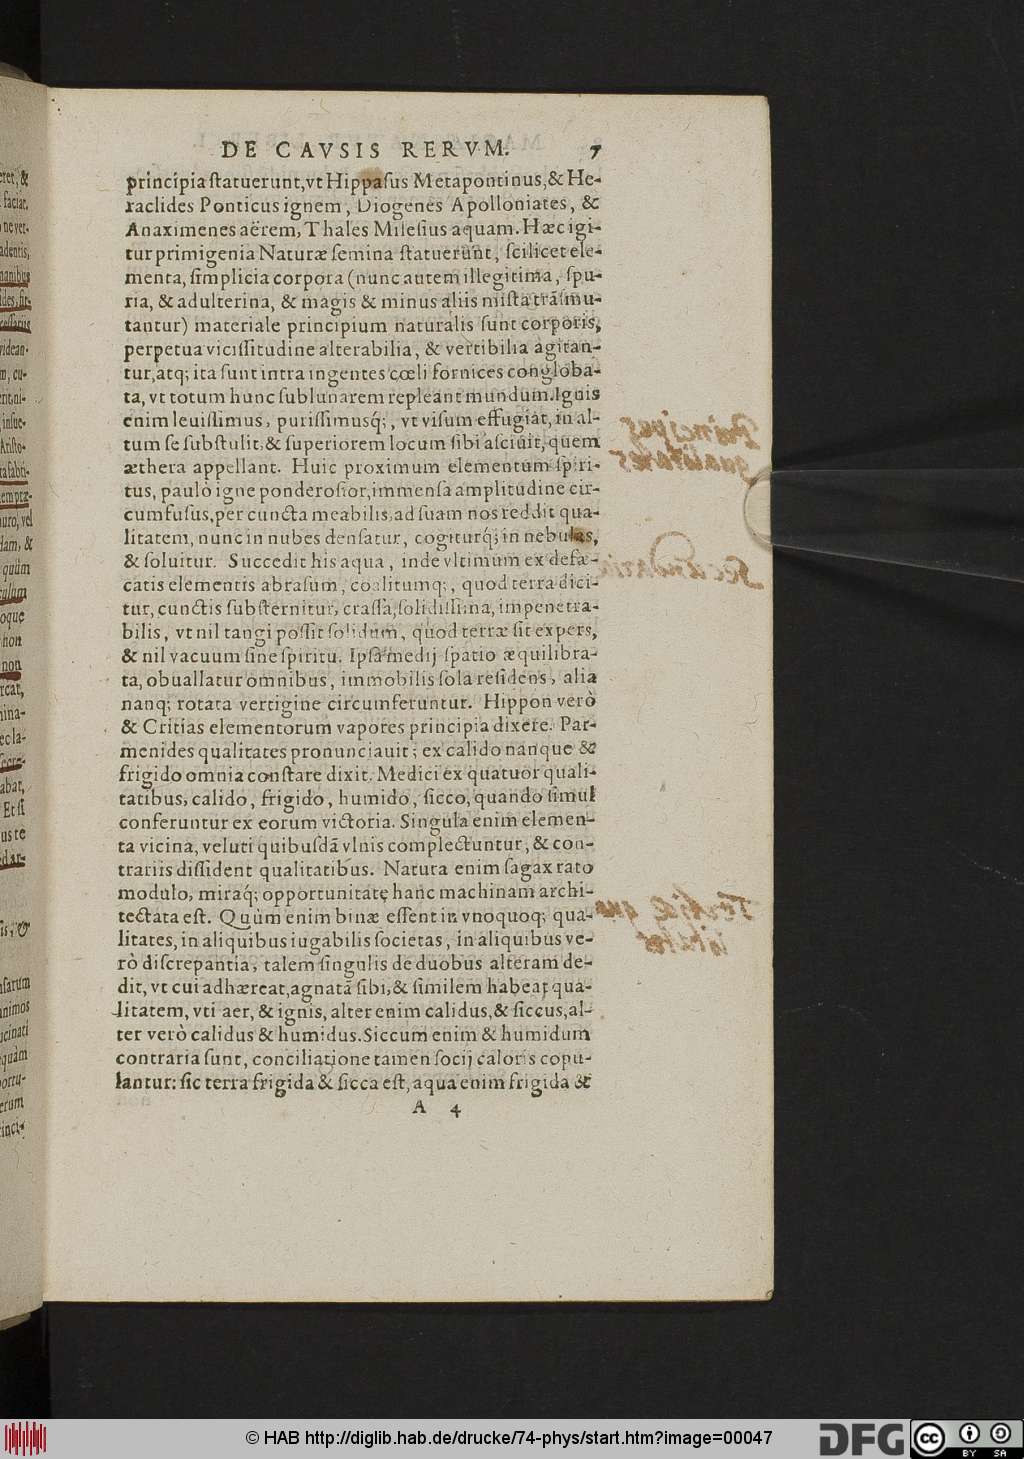 DE CAVSIS RERVM. 7
principia ſtatuerunt, vt Hippaſus Metapontinus, & He-
raclides Ponticus ignem, Diogenes Apolloniates, &
Anaximenes aërem, Thales Mileſius aquam. Hæc igi-
tur primigenia Naturæ ſemina ſtatuerunt, ſcilicet ele-
menta, ſimplicia corpora (nunc autem illegitima, ſpu-
ria, & adulterina, & magis & minus aliis miſta trãſmu-
tantur) materiale principium naturalis ſunt corporis,
perpetua viciſſitudine alterabilia, & vertibilia agitan-
tur, atq; ita ſunt intra ingentes cœli fornices congloba-
ta, vt totum hunc ſublunarem repleant mundum. Ignis
enim leuiſſimus, puriſſimusq́;, vt viſum effugiat, in al-
tum ſe ſubſtulit, & ſuperiorem locum ſibi aſciuit, quem
æthera appellant. Huic proximum elementum ſpiri-
tus, paulò igne ponderoſior, immenſa amplitudine cir-
cumfuſus, per cuncta meabilis, ad ſuam nos reddit qua-
litatem, nunc in nubes denſatur, cogiturq́; in nebulas,
& ſoluitur. Succedit his aqua, inde vltimum ex defæ-
catis elementis abraſum, coalitumq;, quod terra dici-
tur, cunctis ſubſternitur, craſſa, ſolidiſſima, impenetra-
bilis, vt nil tangi poſſit ſolidum, quod terræ ſit expers,
& nil vacuum ſine ſpiritu. Ipſa medij ſpatio æquilibra-
ta, obuallatur omnibus, immobilis ſola reſidens, alia
nanq; rotata vertigine circumferuntur. Hippon verò
& Critias elementorum vapores principia dixere. Par-
menides qualitates pronunciauit; ex calido nanque &
frigido omnia conſtare dixit. Medici ex quatuor quali-
tatibus, calido, frigido, humido, ſicco, quando ſimul
conferuntur ex eorum victoria. Singula enim elemen-
ta vicina, veluti quibuſdã vlnis complectuntur, & con-
trariis diſſident qualitatibus. Natura enim ſagax rato
modulo, miraq́; opportunitatę hanc machinam archi-
tectata eſt. Quùm enim binæ eſſent in vnoquoq; qua-
litates, in aliquibus iugabilis ſocietas, in aliquibus ve-
rò diſcrepantia, talem ſingulis de duobus alteram de-
dit, vt cui adhæreat, agnatã ſibi, & ſimilem habeat qua-
litatem, vti aer, & ignis, alter enim calidus, & ſiccus, al-
ter verò calidus & humidus. Siccum enim & humidum
contraria ſunt, conciliatione tamen ſocij caloris copu-
lantur: ſic terra frigida & ſicca eſt, aqua enim frigida &
A 4
© HAB http://diglib.hab.de/drucke/74-phys/start.htm?image=00047
DFG
cc
BY SA